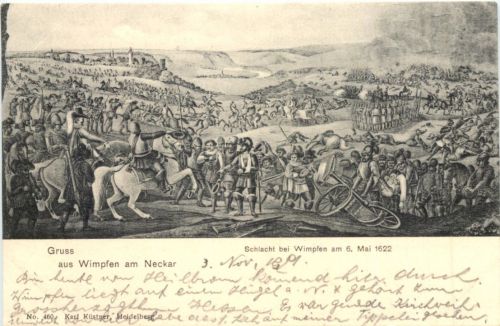 Gruss
aus Wimpfen am Neckar
Schlacht bei Wimpfen am 6. Mai 1622
3. Nov.
Bin heute von Heilbronn kommend hier durch
Wimpfen liegt auf einem Hügel a. N. & gehört zum
Grossherzogthum Hessen. Es war gerade Kirchweih
meiner
No. 460. Karl Küstner, Heidelberg.